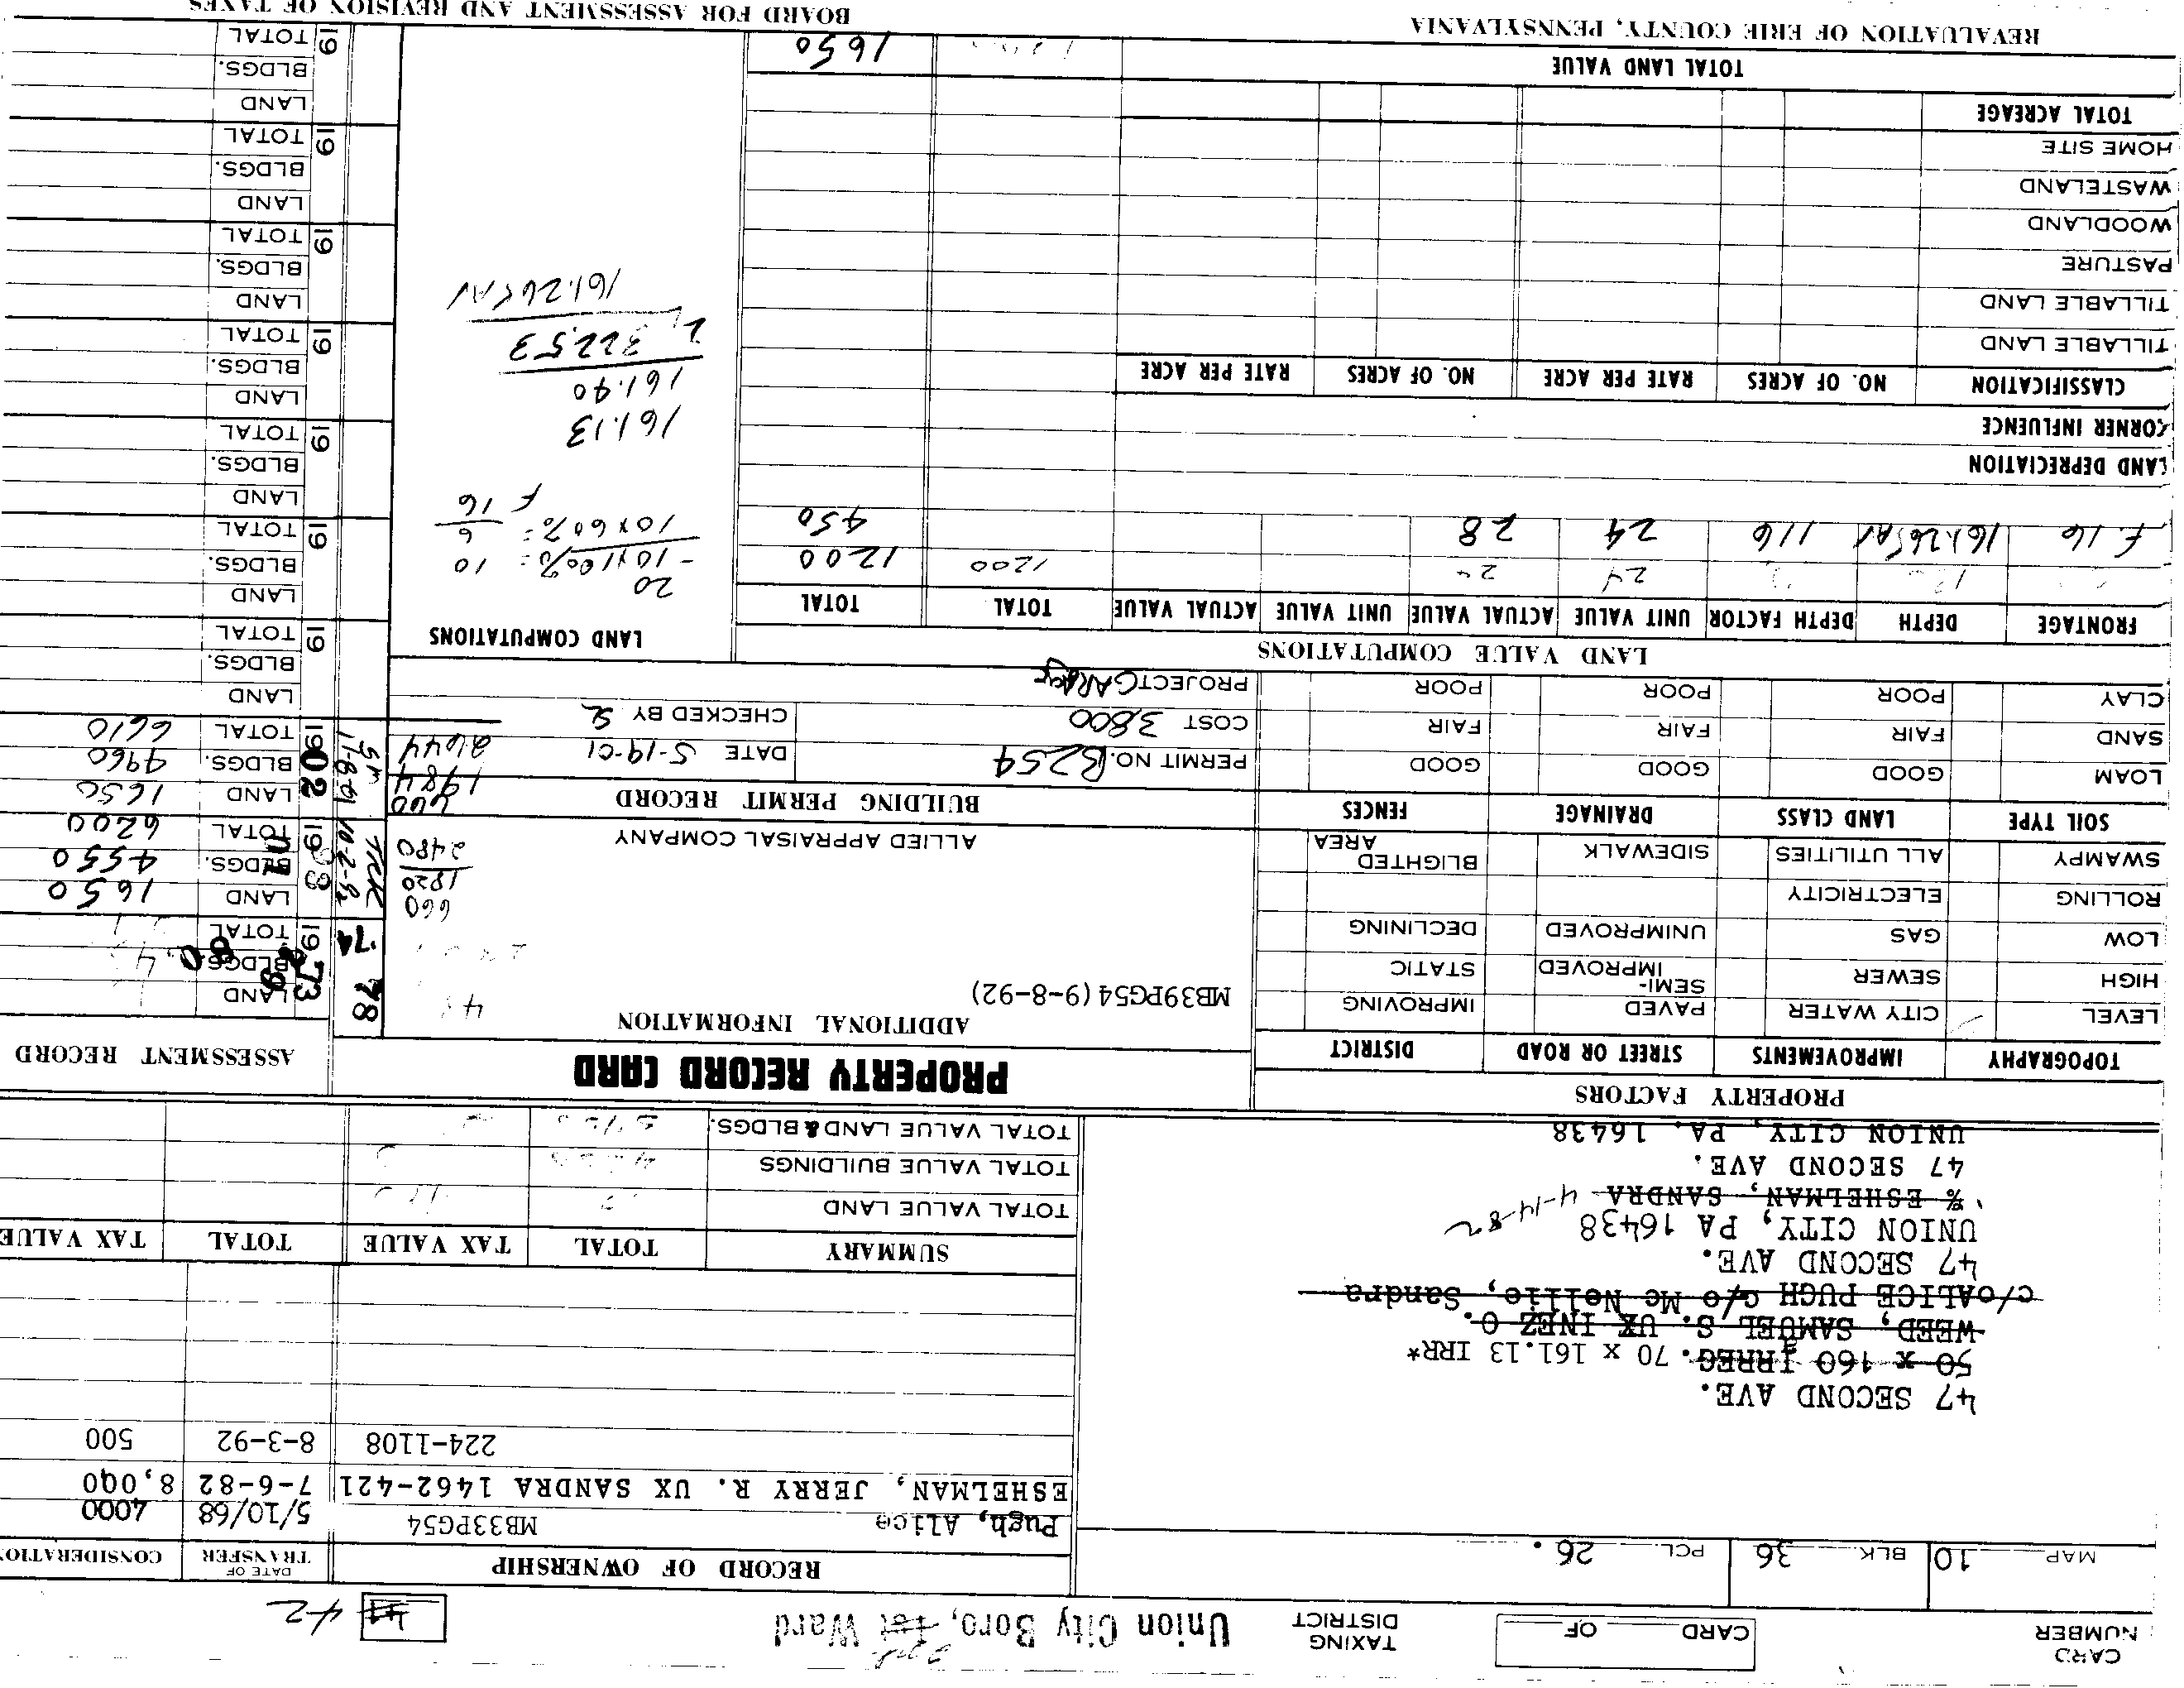 CARD NUMBER
CARD OF
TAXING DISTRICT
Union City Boro, 1st Ward
2nd
42
MAP 10 BLK. 36 PCL. 26.
RECORD OF OWNERSHIP
DATE OF TRANSFER
CONSIDERATION
Pugh, Alice MB33PG54 5/10/68 4000
ESHELMAN, JERRY R. UX SANDRA 1462-421 7-6-82 8,000
224-1108 8-3-92 500
47 SECOND AVE.
50 x 160 IRREG. 70 x 161.13 IRR*
WEED, SAMUEL S. UX INEZ O.
c/oALICE PUGH c/o Mc Nellie, Sandra
47 SECOND AVE.
UNION CITY, PA 16438
% ESHELMAN, SANDRA 4-14-82
47 SECOND AVE.
UNION CITY, PA. 16438
SUMMARY TOTAL TAX VALUE TOTAL TAX VALUE
TOTAL VALUE LAND
TOTAL VALUE BUILDINGS
TOTAL VALUE LAND & BLDGS.
PROPERTY FACTORS
TOPOGRAPHY IMPROVEMENTS STREET OR ROAD DISTRICT
LEVEL CITY WATER PAVED IMPROVING
HIGH SEWER SEMI-IMPROVED STATIC
LOW GAS UNIMPROVED DECLINING
ROLLING ELECTRICITY
SWAMPY ALL UTILITIES SIDEWALK BLIGHTED AREA
SOIL TYPE LAND CLASS DRAINAGE FENCES
LOAM GOOD GOOD GOOD
SAND FAIR FAIR FAIR
CLAY POOR POOR POOR
PROPERTY RECORD CARD
ADDITIONAL INFORMATION
MB39PG54 (9-8-92)
660
1820
2480
ALLIED APPRAISAL COMPANY
BUILDING PERMIT RECORD
660
1984
2644
PERMIT NO. B254 DATE 5-14-01
COST 3800 CHECKED BY
PROJECT GARAGE
ASSESSMENT RECORD
78
'74
TRK
10-2-92
1973 LAND
BLDGS.
TOTAL
1993 LAND 1650
BLDGS. 4550
TOTAL 6200
1902 LAND 1650
BLDGS. 4960
TOTAL 6610
19 LAND
BLDGS.
TOTAL
19 LAND
BLDGS.
TOTAL
19 LAND
BLDGS.
TOTAL
19 LAND
BLDGS.
TOTAL
19 LAND
BLDGS.
TOTAL
19 LAND
BLDGS.
TOTAL
19 LAND
BLDGS.
TOTAL
LAND VALUE COMPUTATIONS
FRONTAGE DEPTH DEPTH FACTOR UNIT VALUE ACTUAL VALUE UNIT VALUE ACTUAL VALUE TOTAL TOTAL
24 24 1200 1200
F.16 161.265AV 116 24 28 450
LAND DEPRECIATION
CORNER INFLUENCE
CLASSIFICATION NO. OF ACRES RATE PER ACRE NO. OF ACRES RATE PER ACRE
TILLABLE LAND
TILLABLE LAND
PASTURE
WOODLAND
WASTELAND
HOME SITE
TOTAL ACREAGE
TOTAL LAND VALUE 1650
LAND COMPUTATIONS
20
- 10x100% = 10
10x60% = 6
F 16
161.13
161.40
2 322.53
161.265AV
REVALUATION OF ERIE COUNTY, PENNSYLVANIA
BOARD FOR ASSESSMENT AND REVISION OF TAXES